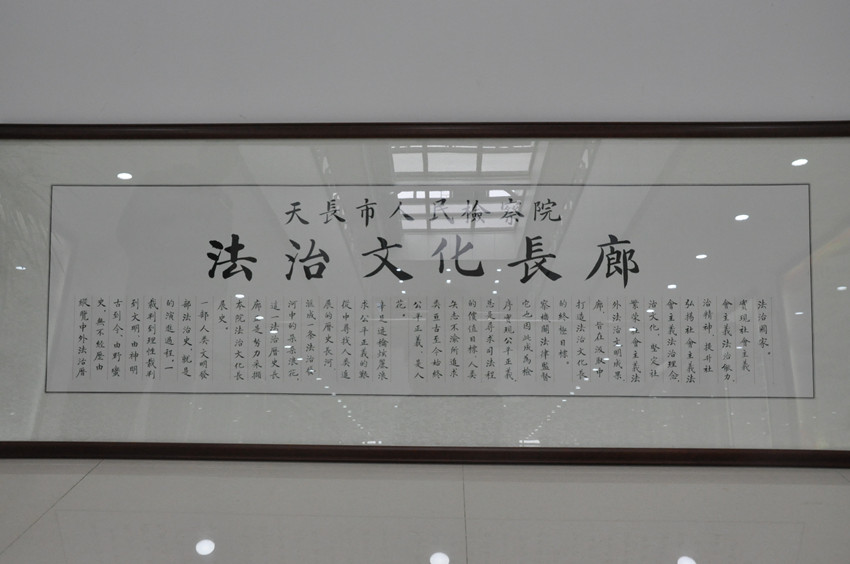 天長市人民檢察院
法治文化長廊
縱覽中外法治曆
史，無不經歷由
古到今、由野蠻
到文明、由神明
裁判到理性裁判
的演進過程。一
部法治史，就是
一部人類文明發
展史。
本院法治文化長
廊，是努力采擷
這一法治曆史長
河中的朵朵浪花，
成一条法治
展的曆史長河
從中尋找人類追
求公平正義的艱
辛足迹
花。
公平正義，是人
類亘古至今始終
矢志不渝所追求
的價值目標。人類
總是尋求司法程
序實現公平正義，
它也因此成為檢
察機關法律監督
的終極目標。
打造法治文化長
廊，旨在汲取中
外法治文明成果，
繁榮社會主義法
治文化，堅定社
會主義法治理念，
弘揚社會主義法
治精神，提升社
會主義法治能力，
實現社會主義
法治國家。